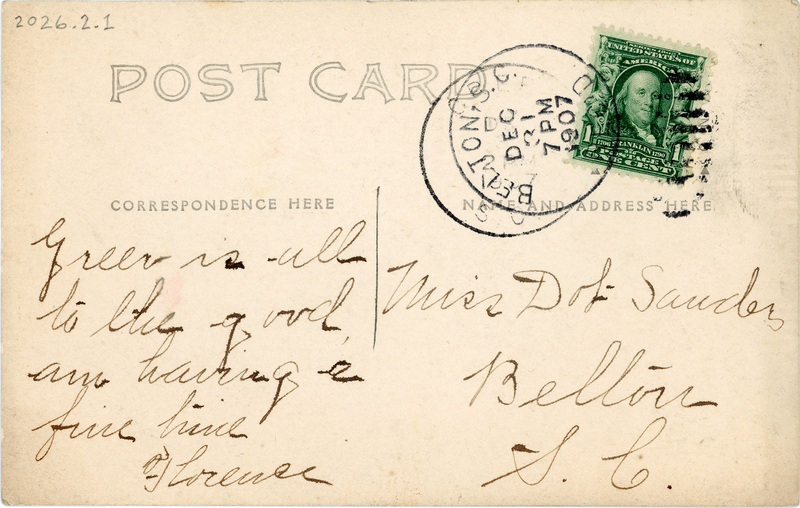 2026.2.1
POST CARD
BELTON, S.C.
DEC
21
7 PM
1907
SERIES 1902
UNITED STATES OF
AMERICA
1706 FRANKLIN 1790
POSTAGE
1 ONE CENT 1
CORRESPONDENCE HERE
NAME AND ADDRESS HERE
Greer is all
to the good,
am having a
fine time
Florence
Miss Dot Sanders
Belton
S. C.